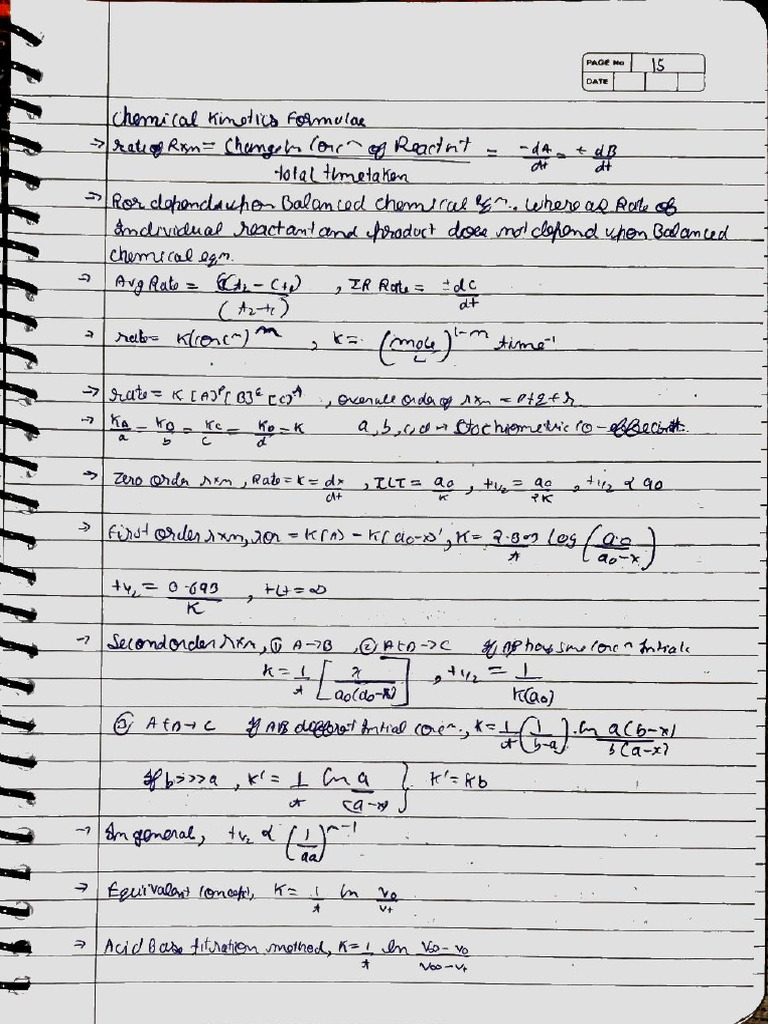 PAGE No 15
DATE
Chemical Kinetics Formulae
→ rate of Rxn = Change in Conc^n of Reactnt / total time taken = -dA/dt = + dB/dt
→ Ror depends upon Balanced chemical Eq^n.. Whereas Rate of
Individual reactant and product does not depend upon Balanced
chemical eqn.
→ Avg Rate = / (t2-t1) , Rate = ±dc/dt
→ rate = K(conc^n)^m , K = (mole/L)^1-m time^-1
→ rate = K [A]^p [B]^q [C]^r , overall order of rxn = p+q+r
→ KA/a = KB/b = KC/c = KD/d = K a, b, c, d → Stochiometric co-
→ Zero order rxn, Rate = K = dx/dt , = a0/K , t1/2 = a0/2K , t1/2 ∝ a0
→ First order rxn, ror = K(A) - K(a0-x)', K = 2.303/t log (a0/a0-x)
t1/2 = 0.693/K , = ∞
→ Second order rxn, ① A→B , ② A+A→C If have same conc^n Initial
K = 1/t [x/a0(a0-x)] , t1/2 = 1/K(a0)
③ A+B→C If AB different Initial conc^n., K = 1/t (1/b-a) .ln a(b-x)/b(a-x)
If b>>>a , K' = 1/t ln a/(a-x) } K' = Kb
→ In general, t1/2 ∝ (1/a0)^n-1
→ Equivalent concept, K = 1/t ln v0/vt
→ Acid Base titration method, K = 1/t ln v∞-v0/v∞-vt